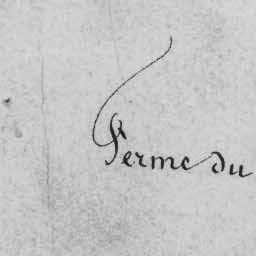 Ferme du